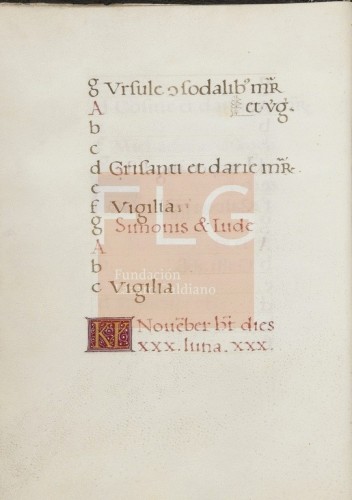 g Vrsule ɔsodalibꝰ mr̃
A et vg̃.
b
c
d Grisanti et darie mr̃.
e
f Vigilia
g Simonis & Iude
A
b
c Vigilia
FLG
Fundación
Lázaro Galdiano
Kl Nouẽber ht̃ dies
xxx. luna. xxx.